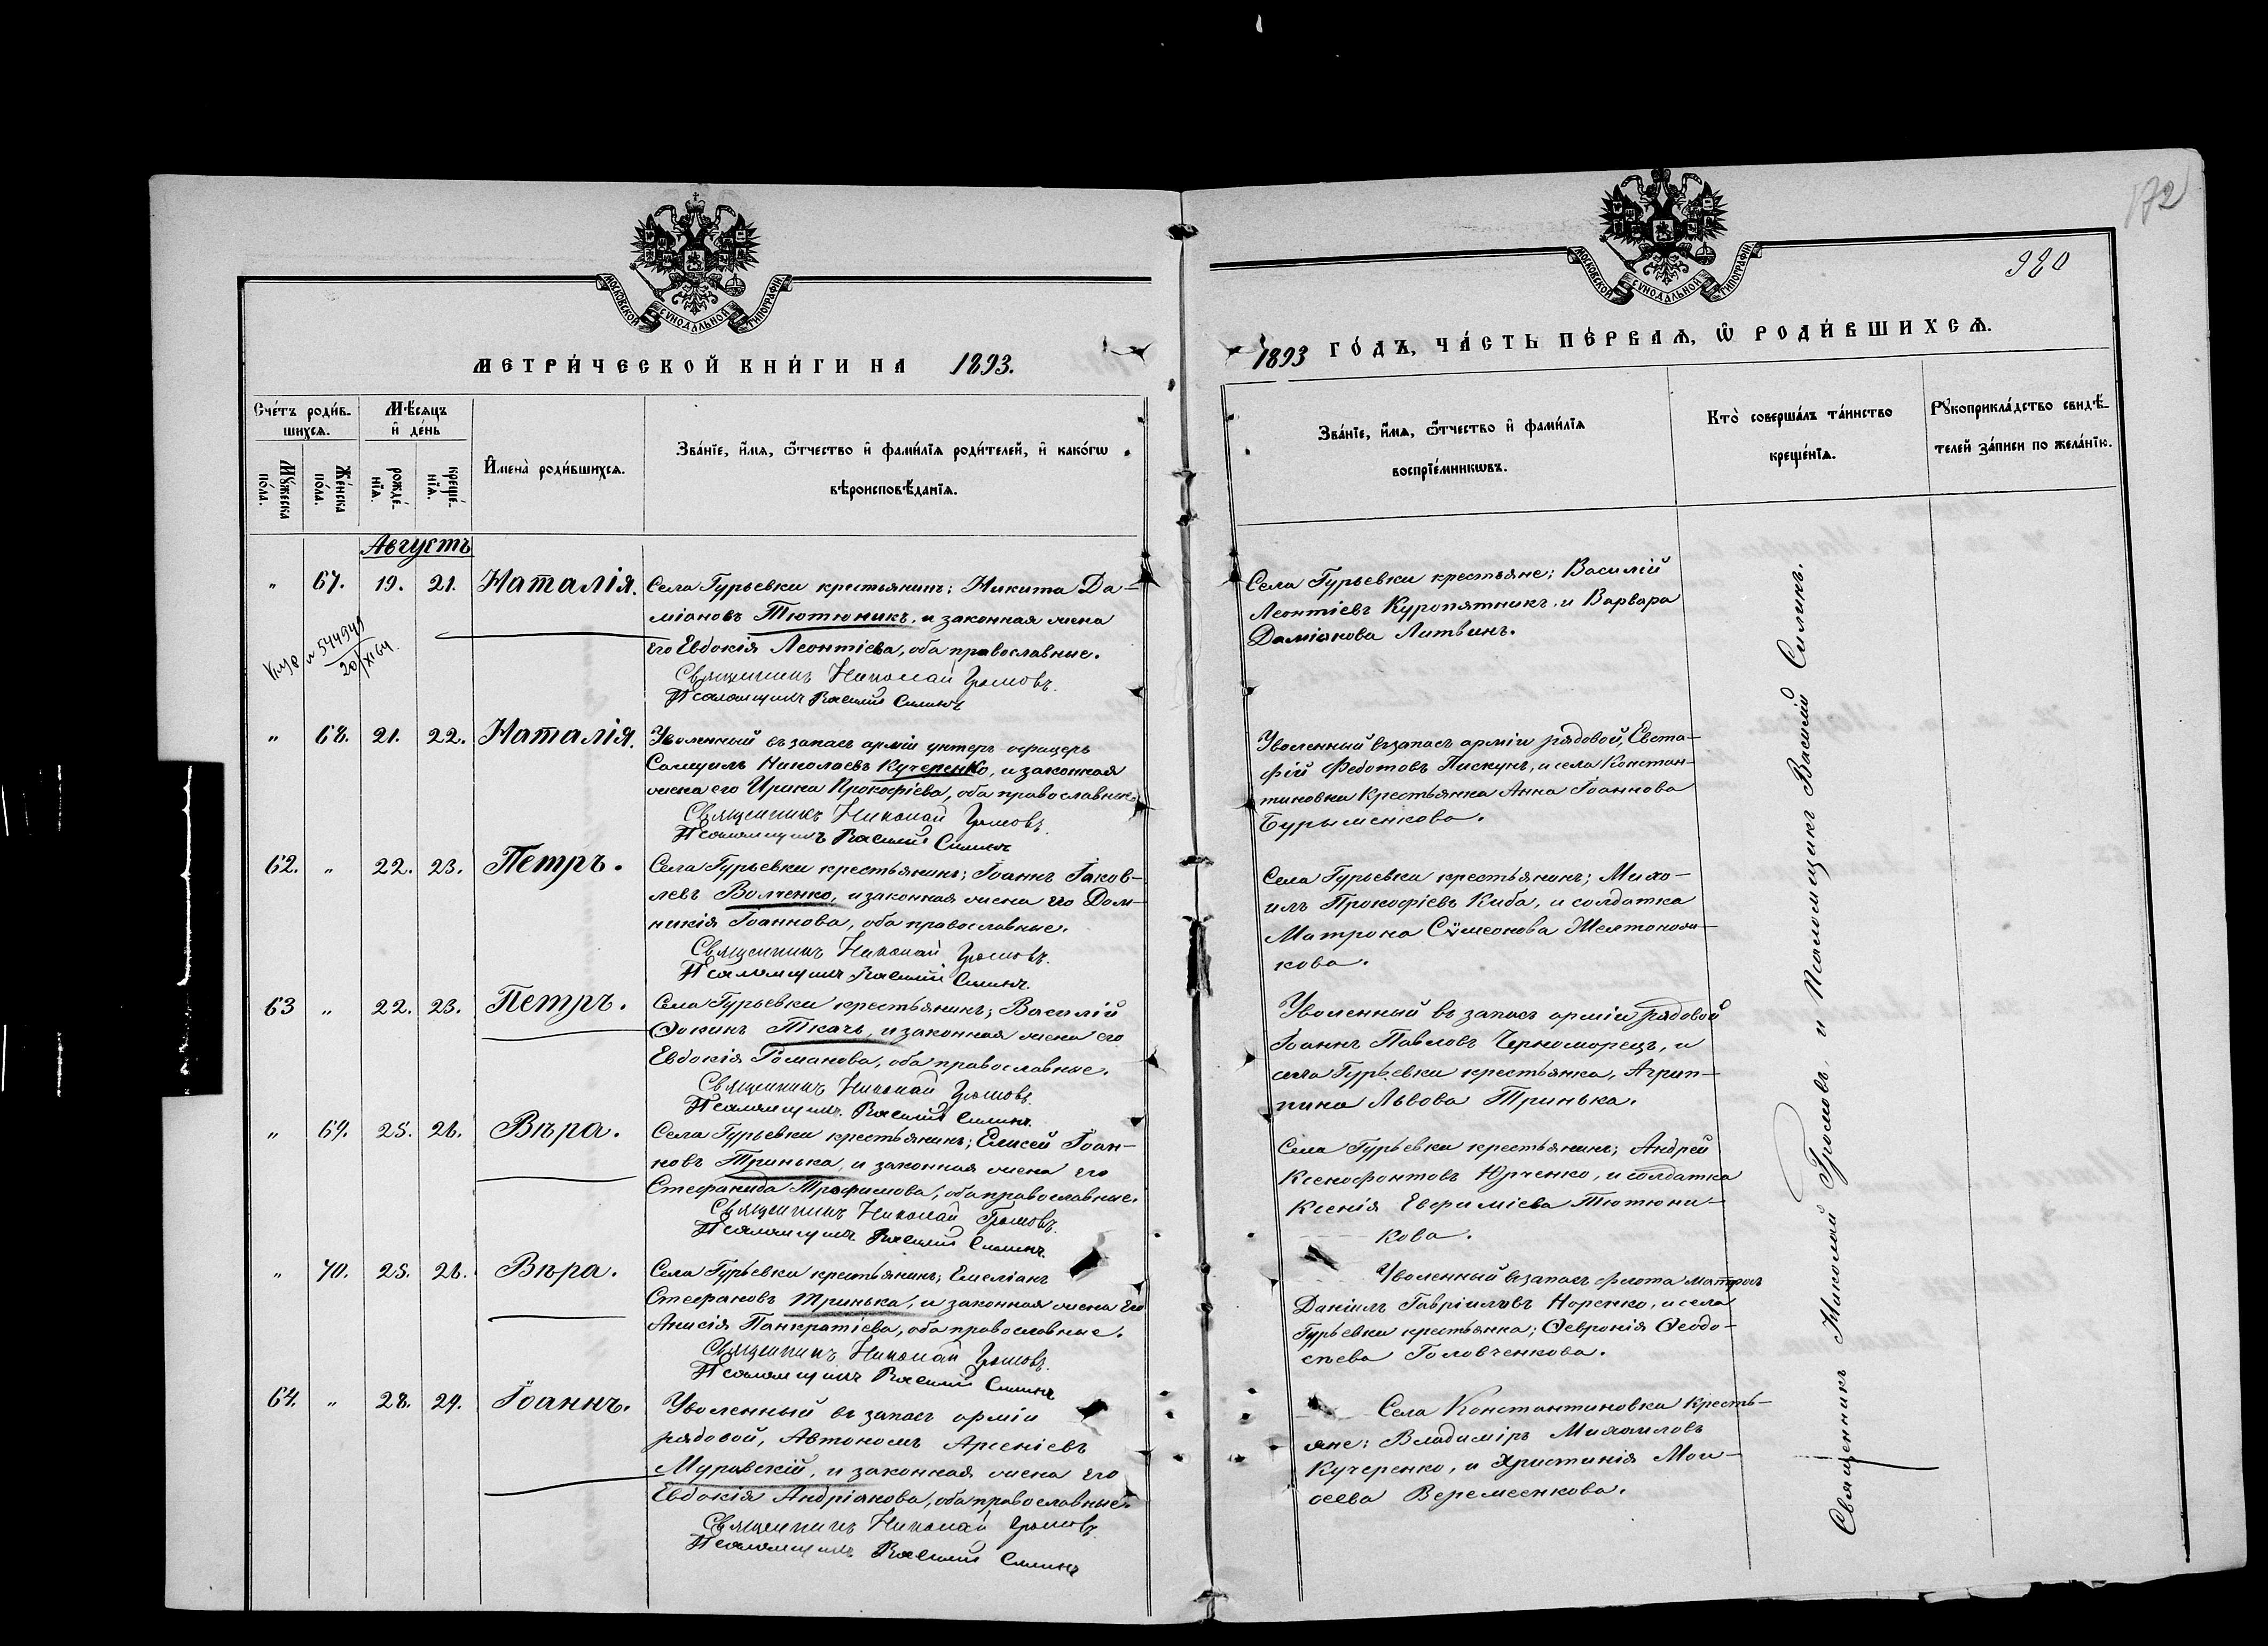 МОСКОВСКОЙ СѴНОДАЛЬНОЙ ТИПОГРАФІИ
МЕТРИ́ЧЕСКОЙ КНИ́ГИ НА 1893.
Сче́тъ роди́в-
шихсѧ.
Мѣ́сяцъ
и҆ де́нь
Мꙋ́жеска
по́ла.
Же́нска
по́ла.
рожде́-
нїѧ.
креще́-
нїѧ.
И҆мена̀ роди́вшихсѧ.
Зва́нїе, и҆́мѧ, ѻ҆́тчество и҆ фами́лїѧ роди́телей, и҆ како́гѡ
вѣроисповѣ́данїѧ.
Августъ
" 67. 19. 21. Наталія. Села Гурьевки крестьянинъ; Никита Да-
міановъ Тютюникъ, и законная жена
его Евдокія Леонтіева, оба православные.
№ 544949
20/XI 64.
Священникъ Николай Громовъ.
Псаломщикъ Василій Силинъ
" 68. 21. 22. Наталія. Уволенный въ запасъ арміи унтеръ офицеръ
Самуилъ Николаевъ Кучеренко, и законная
жена его Ирина Прокофіева, оба православные.
Священникъ Николай Громовъ.
Псаломщикъ Василій Силинъ
62. " 22. 23. Петръ. Села Гурьевки крестьянинъ; Іоаннъ Іаков-
левъ Волченко, и законная жена его Дом-
никія Іоаннова, оба православные.
Священникъ Николай Громовъ.
Псаломщикъ Василій Силинъ.
63 " 22. 23. Петръ. Села Гурьевки крестьянинъ; Василій
Ѳокинъ Ткачъ, и законная жена его
Евдокія Романова, оба православные.
Священникъ Николай Громовъ.
Псаломщикъ Василій Силинъ.
" 69. 25. 26. Вѣра. Села Гурьевки крестьянинъ; Елисей Іоан-
новъ Тринька, и законная жена его
Стефанида Трофимова, оба православные.
Священникъ Николай Громовъ.
Псаломщикъ Василій Силинъ.
" 70. 25. 26. Вѣра. Села Гурьевки крестьянинъ; Емеліанъ
Стефановъ Тринька, и законная жена его
Анисія Панкратіева, оба православные.
Священникъ Николай Громовъ.
Псаломщикъ Василій Силинъ
64. " 28. 29. Іоаннъ. Уволенный въ запасъ арміи
рядовой, Автономъ Арсеніевъ
Муравскій, и законная жена его
Евдокія Андріанова, оба православные.
Священникъ Николай Громовъ.
Псаломщикъ Василій Силинъ
172
920
МОСКОВСКОЙ СѴНОДАЛЬНОЙ ТИПОГРАФІИ
1893 ГО́ДЪ, ЧА́СТЬ ПЕ́РВАѦ, Ѡ҆ РОДИ́ВШИХСѦ.
Зва́нїе, и҆́мѧ, ѻ҆́тчество и҆ фами́лїѧ
воспрїе́мникѡвъ.
Кто̀ соверша́лъ та́инство
креще́нїѧ.
Рꙋкоприкла́дство свидѣ́-
телей за́писи по жела́нїю.
Села Гурьевки крестьяне; Василій
Леонтіевъ Куропятникъ, и Варвара
Даміанова Литвинъ.
Уволенный въ запасъ арміи рядовой, Евста-
фій Федотовъ Пискунъ, и села Констан-
тиновки крестьянка Анна Іоаннова
Бурыменкова.
Села Гурьевки крестьянинъ; Миха-
илъ Прокофіевъ Киба, и солдатка
Матрона Сѵмеонова Желтоножи-
кова.
Уволенный въ запасъ арміи рядовой
Іоаннъ Павловъ Черноморецъ, и
села Гурьевки крестьянка, Агрип-
пина Львова Тринька.
Села Гурьевки крестьянинъ; Андрей
Ксенофонтовъ Юрченко, и солдатка
Ксенія Евфиміева Тютюни-
кова.
Уволенный въ запасъ флота матросъ
Даніилъ Гавріиловъ Норенко, и села
Гурьевки крестьянка; Ѳевронія Ѳеодо-
сьева Головченкова.
Села Константиновки кресть-
яне; Владиміръ Михаиловъ
Кучеренко, и Христинія Мои-
сеева Веремеенкова.
Священникъ Николай Громовъ, и Псаломщикъ Василій Силинъ.